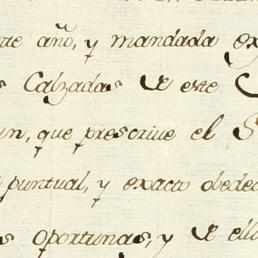 año, y mandada
Calzadas de este
que prescrive el
puntual, y exacto
oportunas, y de